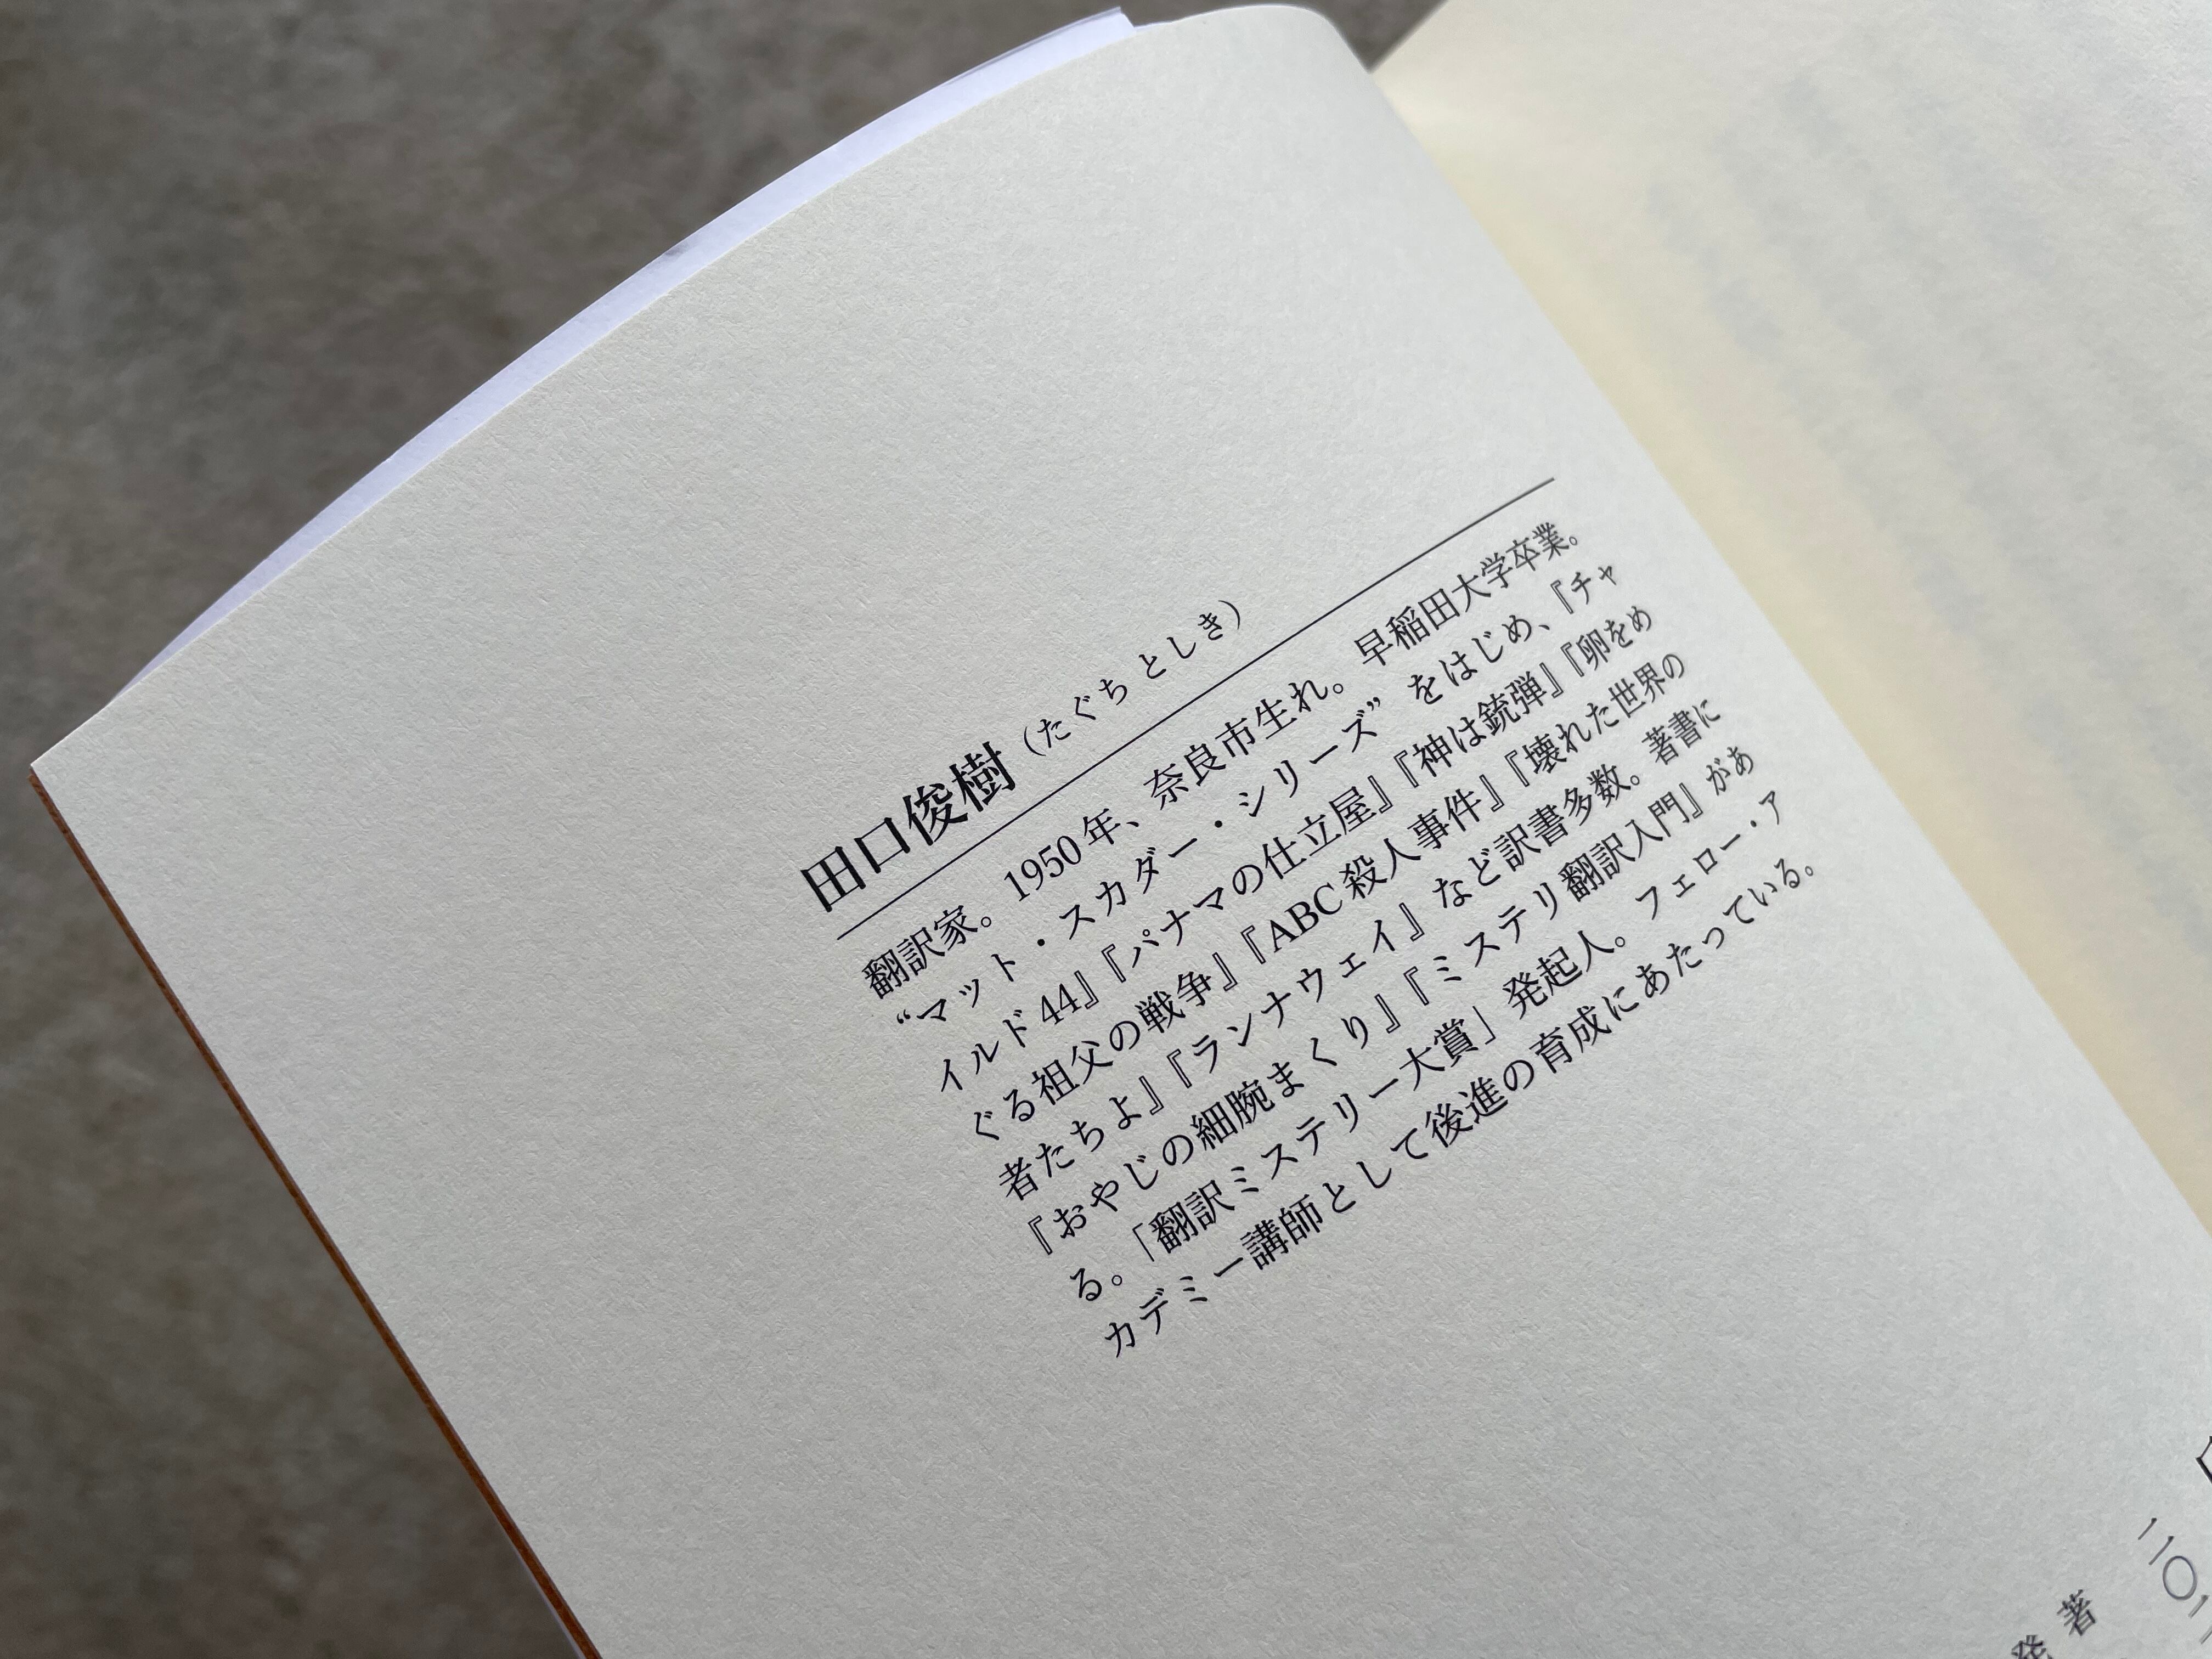 田口俊樹（たぐち としき）
翻訳家。1950年、奈良市生れ。早稲田大学卒業。
“マット・スカダー・シリーズ”をはじめ、『チャ
イルド44』『パナマの仕立屋』『神は銃弾』『卵をめ
ぐる祖父の戦争』『ABC殺人事件』『壊れた世界の
者たちよ』『ランナウェイ』など訳書多数。著書に
『おやじの細腕まくり』『ミステリ翻訳入門』があ
る。「翻訳ミステリー大賞」発起人。フェロー・ア
カデミー講師として後進の育成にあたっている。
二〇
著
発